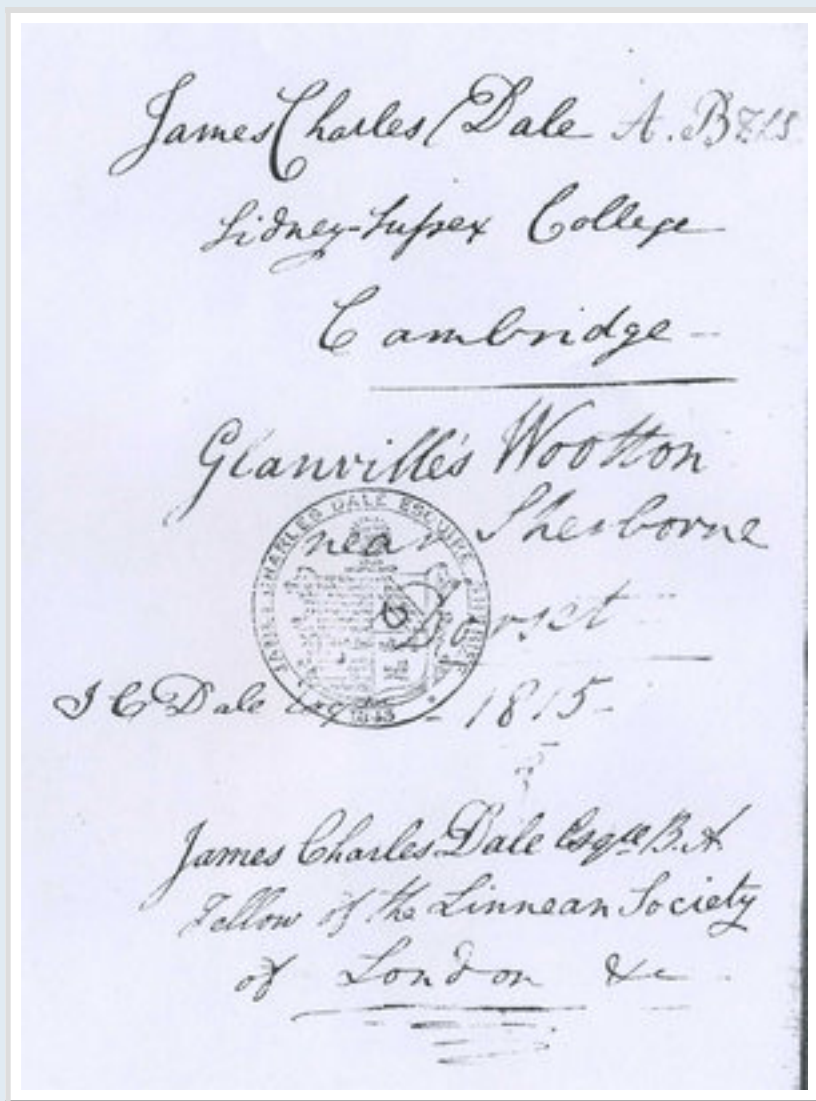 James Charles Dale A.B F.L.S
Sidney-Sussex College
Cambridge -
Glanville's Wootton
near Sherborne
Dorset
J C Dale Esq - 1815 -
JAMES CHARLES DALE ESQUIRE
James Charles Dale Esqre B.A
Fellow of the Linnean Society
of London &c